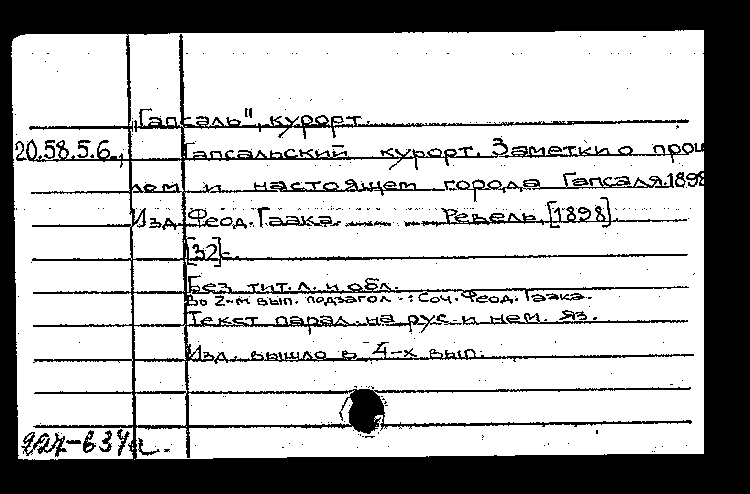 „Гапсаль", курорт.
20.58.5.6., Гапсальский курорт. Заметки о прош
лом и настоящем города Гапсаля. 1898
Изд. Феод. Гаака. Ревель, [1898].
[32]с.
Без тит. л. и обл.
Во 2-м вып. подзагол.: Соч. Феод. Гаака.
Текст парал. на рус. и нем. яз.
Изд. вышло в 4-х вып.